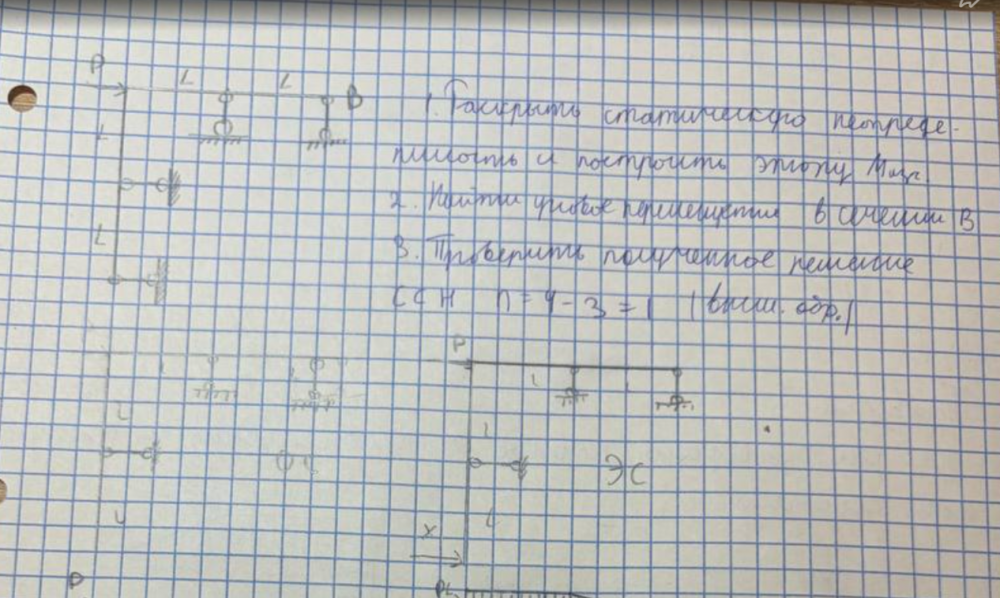 P
L L B
1. Раскрыть статическую неопреде-
L
лимость и построить эпюру Mизг.
2. Найти угловое перемещение в сечении В
L
3. Проверить полученное решение
ССН n = 4 - 3 = 1 (внеш. обр.)
P
L L
L L
ЭС
L L
X
P PL